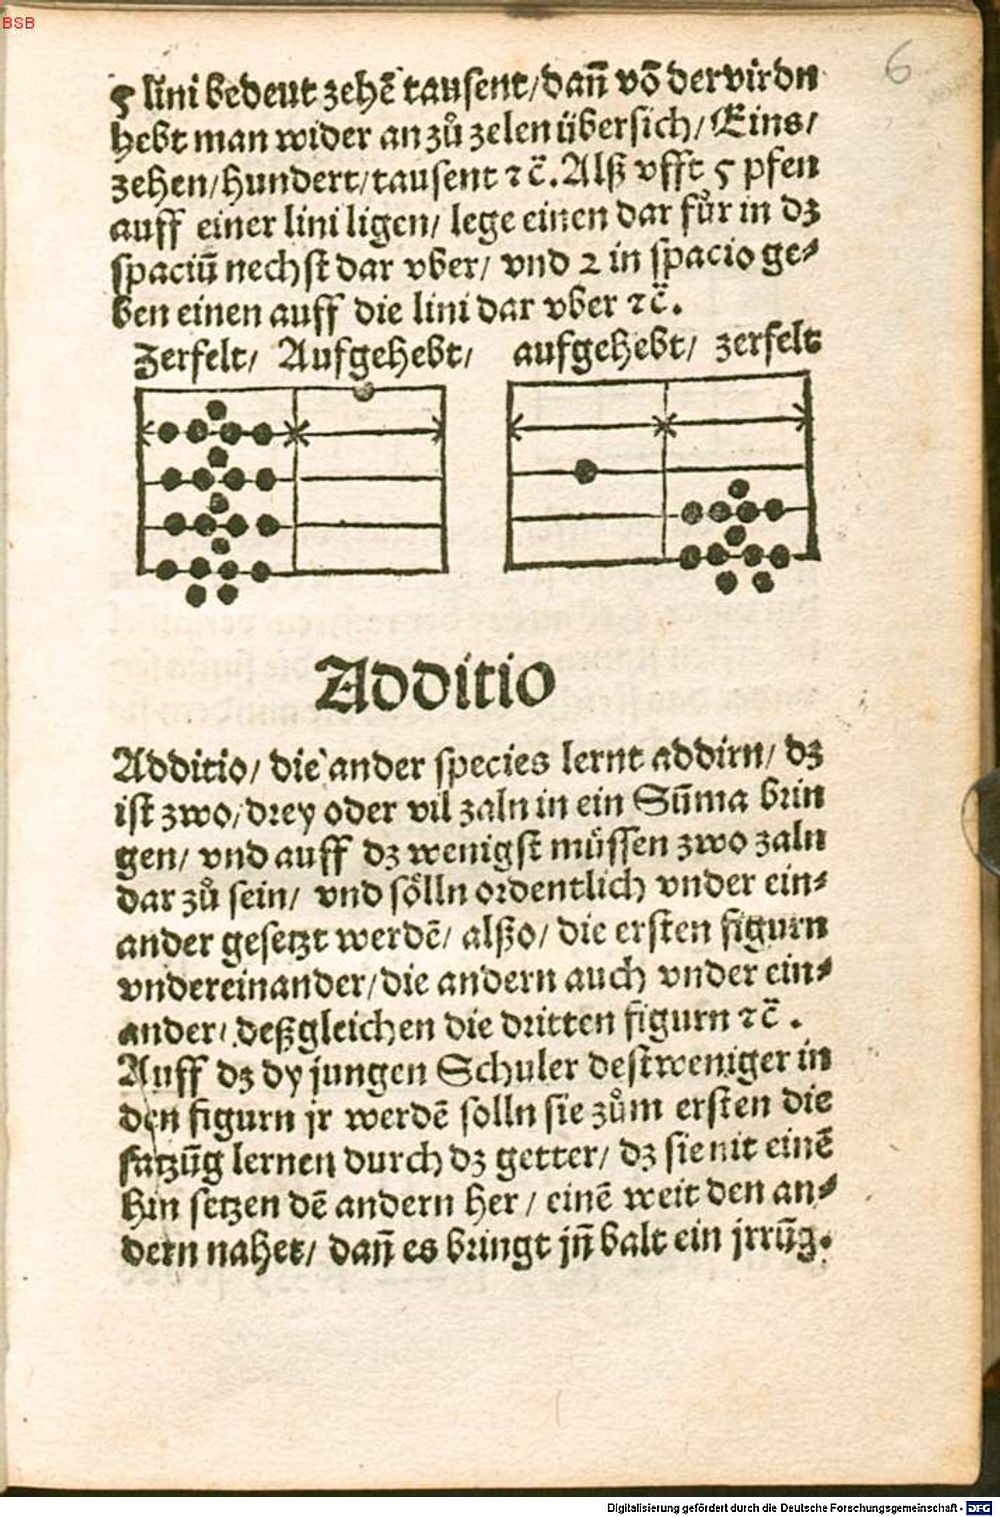 BSB
6
5 lini bedeut zehē tausent/dañ vō der virdn
hebt man wider an zů zelen übersich/Eins/
zehen/hundert/tausent ⁊c̄. Alß vfft 5 pfen
auff einer lini ligen/ lege einen dar fůr in dz
spaciū nechst dar vber/ vnd 2 in spacio ge⸗
ben einen auff die lini dar vber ⁊c̄.
Zerfelt/ Aufgehebt/ aufgehebt/ zerfelt
Additio
Additio/ die ander species lernt addirn/ dz
ist zwo/drey oder vil zaln in ein Sūma brin
gen/ vnd auff dz wenigst müssen zwo zaln
dar zů sein/ vnd sölln ordentlich vnder ein⸗
ander gesetzt werdē/ alßo/ die ersten figurn
vndereinander/die andern auch vnder ein⸗
ander/ deßgleichen die dritten figurn ⁊c̄.
Auff dz dy jungen Schuler destweniger in
den figurn jr werdē solln sie zům ersten die
satzūg lernen durch dz getter/ dz sie nit einē
hin setzen dē andern her/ einē weit den an⸗
dern nahet/ dañ es bringt jñ balt ein jrrūg.
Digitalisierung gefördert durch die Deutsche Forschungsgemeinschaft - DFG